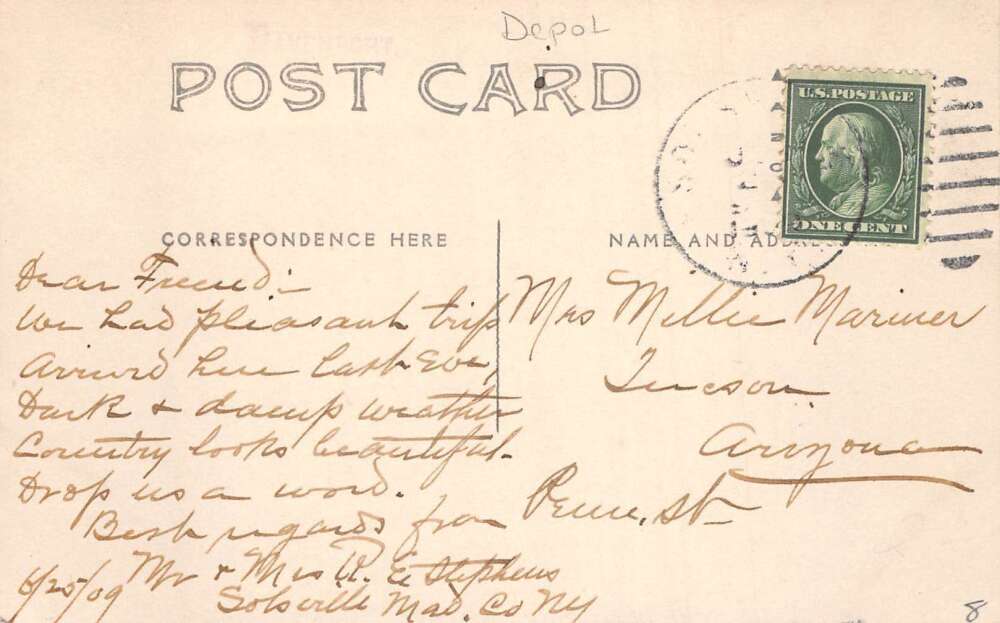 Depot
POST CARD
U.S. POSTAGE
ONE CENT
CORRESPONDENCE HERE
NAME AND ADDRESS
Dear Friend:-
We had pleasant trip
Arrived here last Eve,
Dark & damp weather
Country looks beautiful.
Drop us a word.
Best regards from
Mr & Mrs R. E Stephens
6/25/09
Solsville Mad. Co NY
Mrs Millie Mariner
Tucson.
Arizona
Penn. St
8